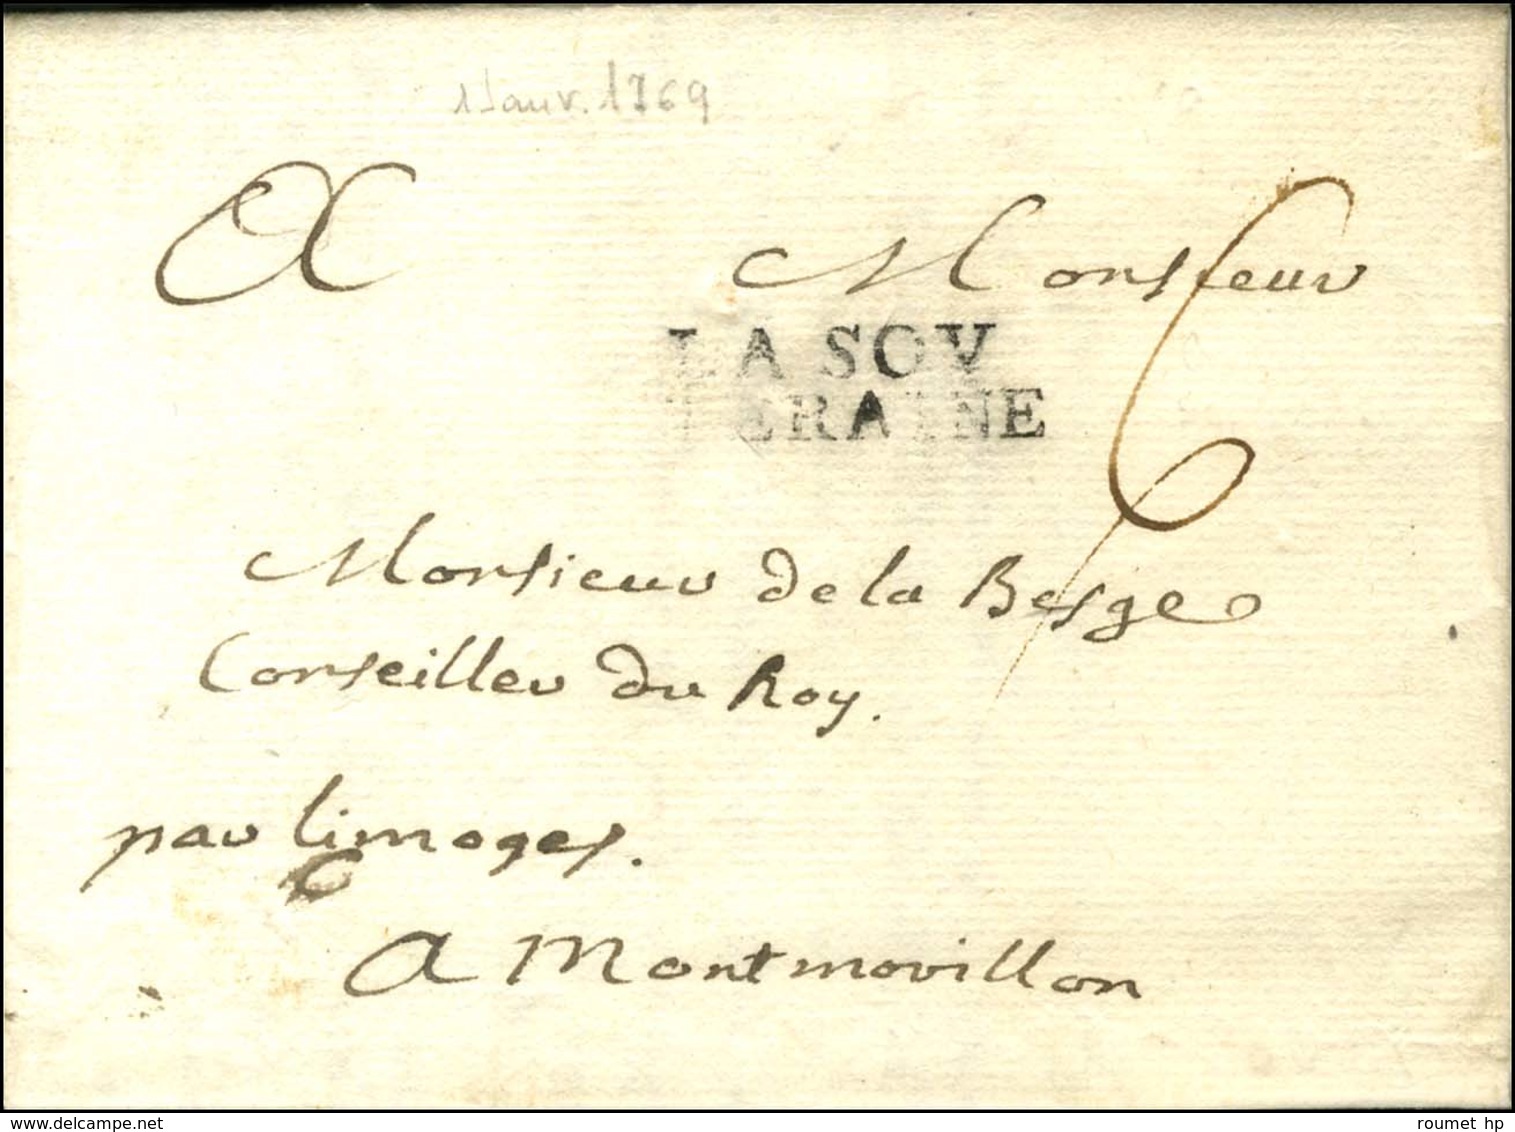 1 Janv. 1769
A Monsieur
LA SOV
TERAINE
6
Monsieur de la Besge
Conseiller du Roy.
par Limoges.
A Montmorillon
www.delcampe.net
roumet hp